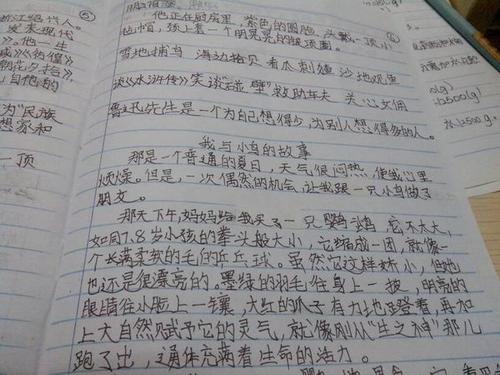 浙江绍兴人。
他正在厨房里，紫色的圆脸，头戴一顶小
毡帽，颈上套一个明晃晃的银项圈。
雪地捕鸟 海边拾贝 看瓜刺猹 沙地观鱼
谈《水浒传》 笑谈"碰壁" 救助车夫 关心女佣
鲁迅先生是一个为自己想得少，为别人想得多的人。
我与小鸟的故事
那是一个普通的夏日，天气很闷热，使我心里
烦燥。但是，一次偶然的机会，让我跟一只小鸟做了
朋友。
那天下午，妈妈给我买了一只鹦鹉，它不太大，
如同7.8岁小孩的拳头般大小，它缩成一团，就像一
个长满柔软的毛的乒乓球。虽然它这样娇小，但她
也还是很漂亮的。墨绿的羽毛往身上一披，明亮的
眼睛往小脸上一镶，大红的爪子有力地蹬着，再加
上大自然赋予它的灵气，就像刚从"生之神"那儿
跑了出，通体充满着生命的活力。
发表现代
他一生
《彷徨》
朝花夕拾》
为"民族
想家和
一顶